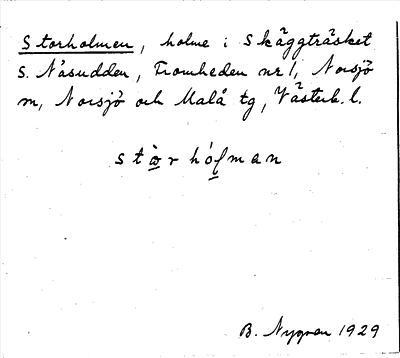 Storholmen, holme i Skäggträsket
S. Näsudden, Fromheden nr 1, Norsjö
sn, Norsjö och Malå tg, Västerb. l.
stòrhó̢lman
B. Nygren 1929